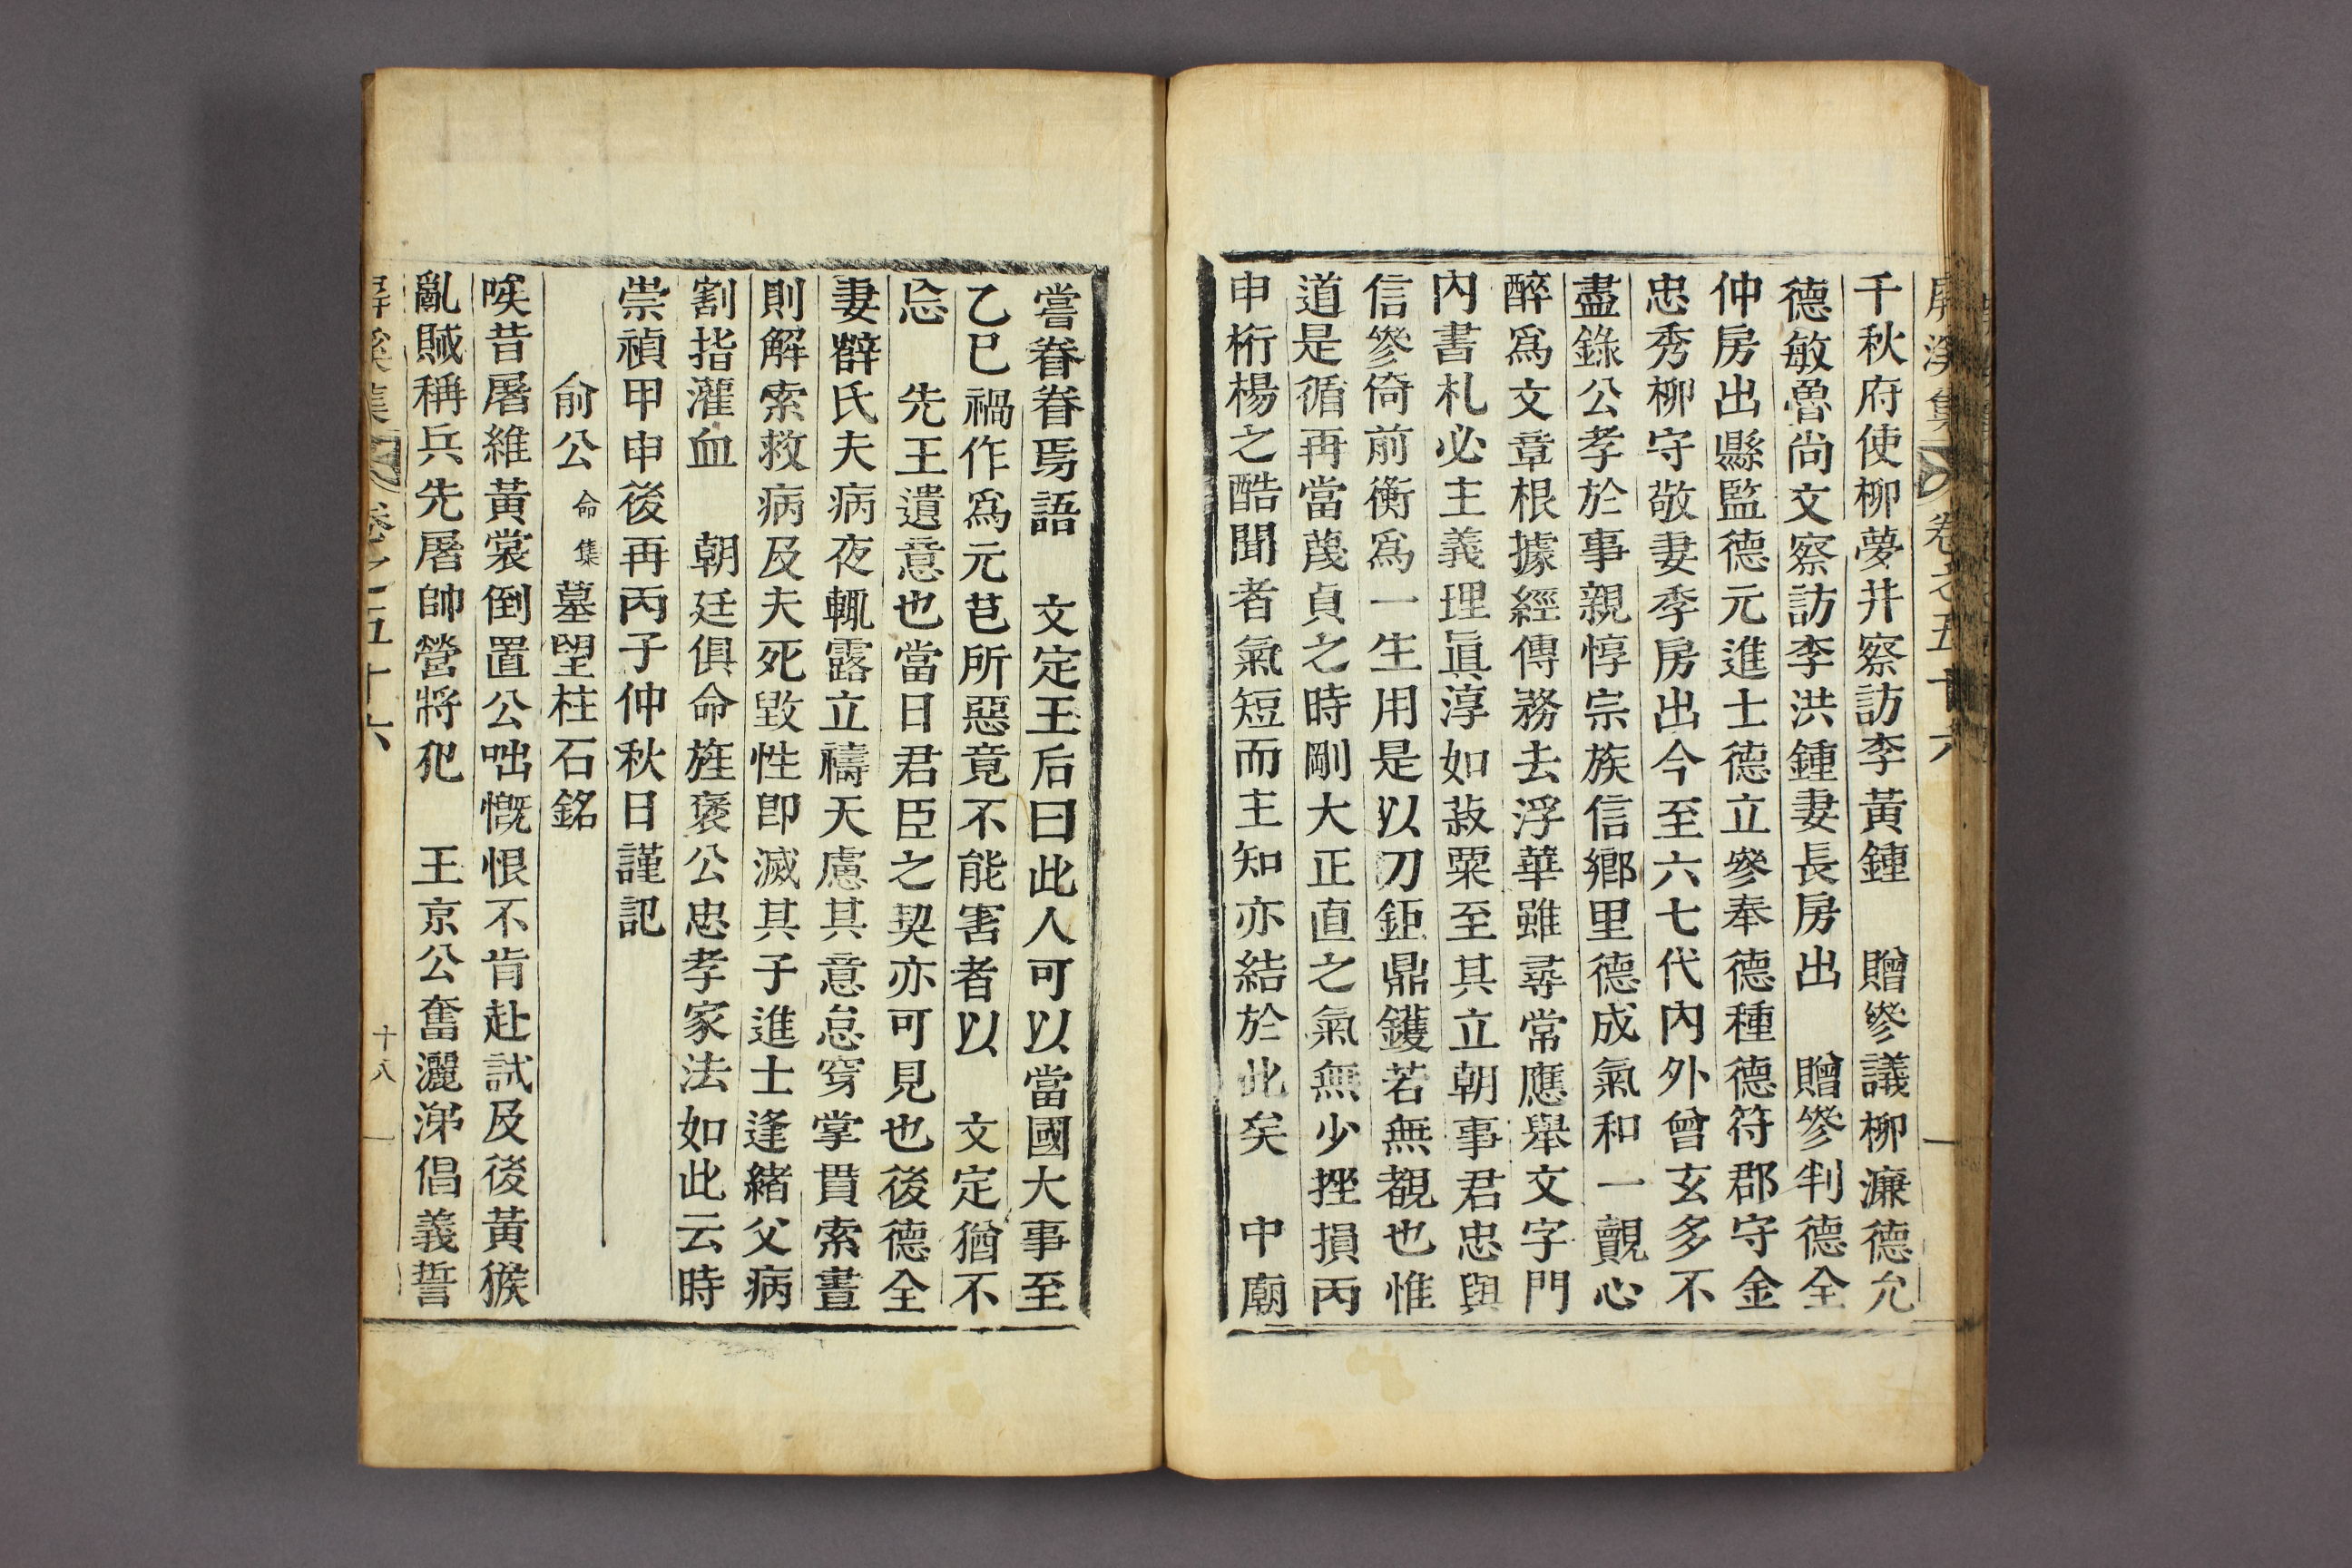 屛溪集 卷之五十六
千秋府使柳夢井察訪李黃鍾 贈參議柳濂德允
德敏魯尙文察訪李洪鍾妻長房出 贈參判德全
仲房出縣監德元進士德立參奉德種德符郡守金
忠秀柳守敬妻季房出今至六七代內外曾玄多不
盡錄公孝於事親惇宗族信鄕里德成氣和一覿心
醉爲文章根據經傳務去浮華雖尋常應擧文字門
內書札必主義理眞淳如菽粟至其立朝事君忠與
信參倚前衡爲一生用是以刀鉅鼎鑊若無覩也惟
道是循再當蔑貞之時剛大正直之氣無少挫損丙
申桁楊之酷聞者氣短而主知亦結於此矣 中廟
嘗眷眷焉語 文定王后曰此人可以當國大事至
乙巳禍作爲元芑所惡竟不能害者以 文定猶不
忘 先王遺意也當日君臣之契亦可見也後德全
妻辥氏夫病夜輒露立禱天慮其意怠穿掌貫索晝
則解索救病及夫死毀性卽滅其子進士逢緖父病
割指灌血 朝廷俱命旌褒公忠孝家法如此云時
崇禎甲申後再丙子仲秋日謹記
俞公 命集 墓望柱石銘
唉昔屠維黃裳倒置公咄慨恨不肯赴試及後黃猴
亂賊稱兵先屠帥營將犯 王京公奮灑涕倡義誓
屛溪集 卷之五十六 十八